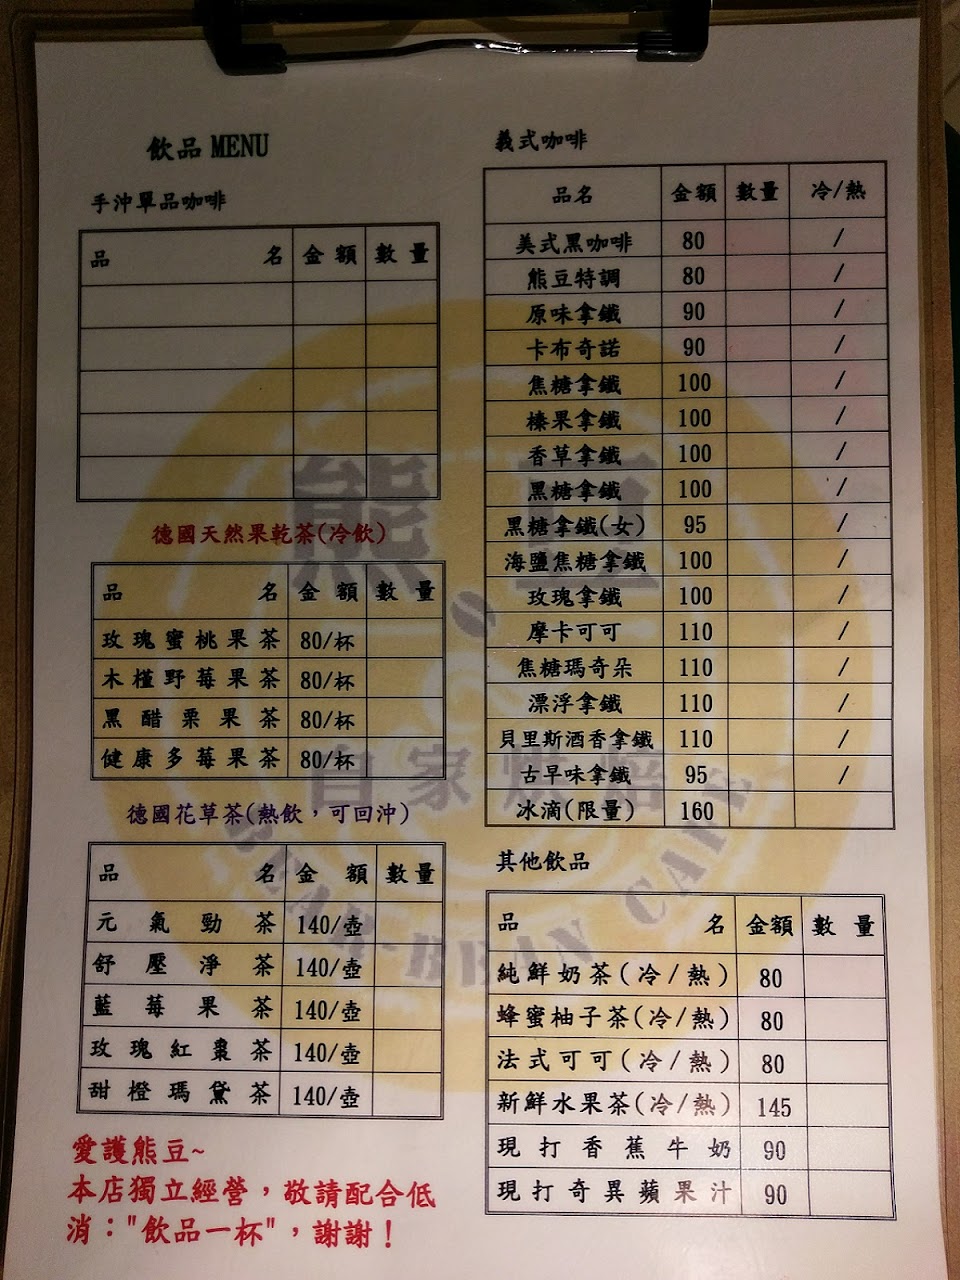 飲品 MENU
手沖單品咖啡
品名 金額 數量
德國天然果乾茶(冷飲)
品名 金額 數量
玫瑰蜜桃果茶 80/杯
木槿野莓果茶 80/杯
黑醋栗果茶 80/杯
健康多莓果茶 80/杯
德國花草茶(熱飲，可回沖)
品名 金額 數量
元氣勁茶 140/壺
舒壓淨茶 140/壺
藍莓果茶 140/壺
玫瑰紅棗茶 140/壺
甜橙瑪黛茶 140/壺
愛護熊豆~
本店獨立經營，敬請配合低
消："飲品一杯"，謝謝！
義式咖啡
品名 金額 數量 冷/熱
美式黑咖啡 80 /
熊豆特調 80 /
原味拿鐵 90 /
卡布奇諾 90 /
焦糖拿鐵 100 /
榛果拿鐵 100 /
香草拿鐵 100 /
黑糖拿鐵 100 /
黑糖拿鐵(女) 95 /
海鹽焦糖拿鐵 100 /
玫瑰拿鐵 100 /
摩卡可可 110 /
焦糖瑪奇朵 110 /
漂浮拿鐵 110 /
貝里斯酒香拿鐵 110 /
古早味拿鐵 95 /
冰滴(限量) 160
其他飲品
品名 金額 數量
純鮮奶茶(冷/熱) 80
蜂蜜柚子茶(冷/熱) 80
法式可可(冷/熱) 80
新鮮水果茶(冷/熱) 145
現打香蕉牛奶 90
現打奇異蘋果汁 90
熊豆
自家烘焙
BEAR-BEAN CAFE